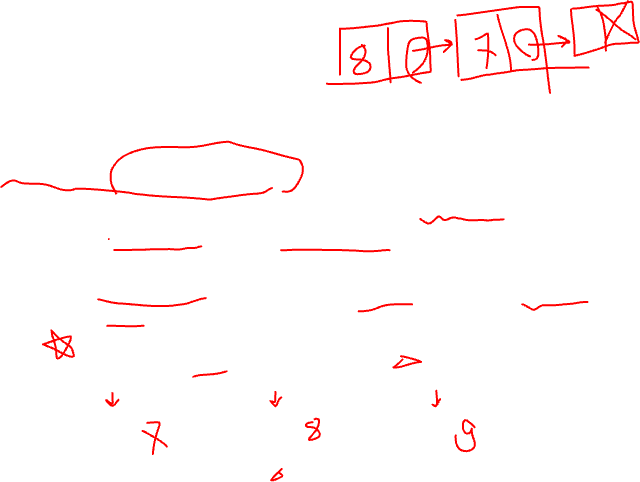 8 7
7 8 9